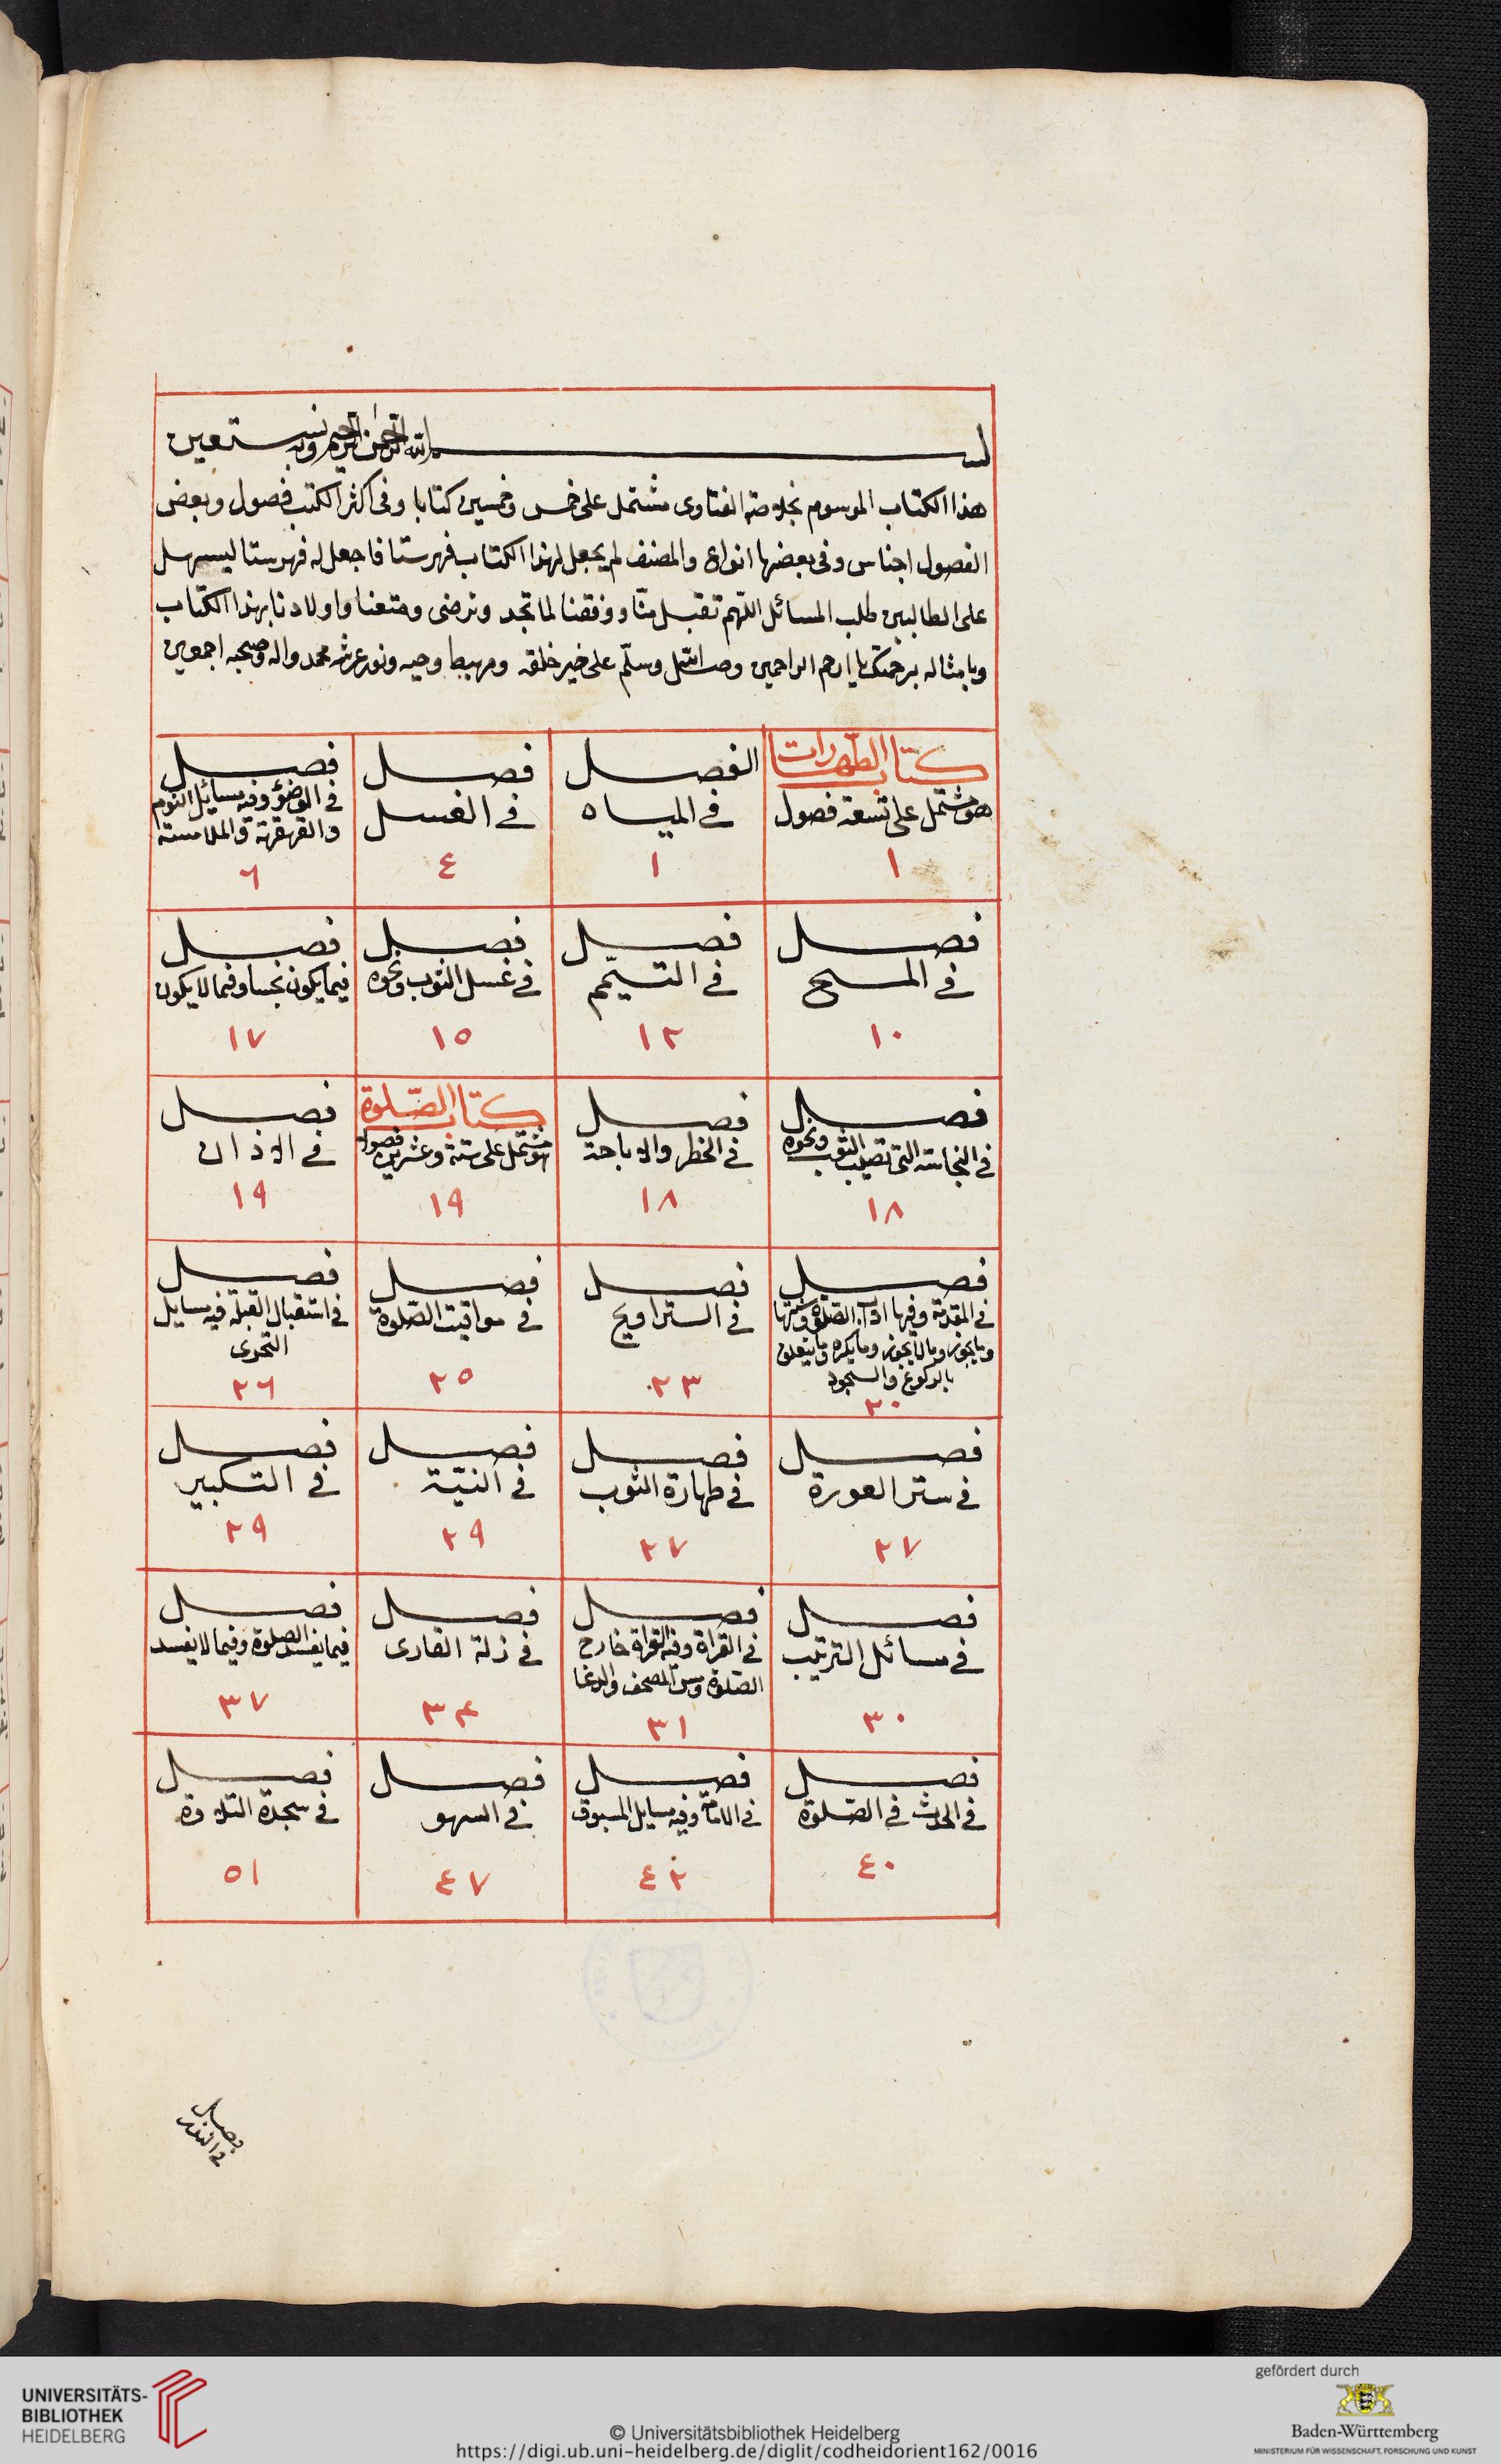 بسم الله الرحمن الرحيم وبه نستعين
هذا الكتاب الموسوم بخلاصة الفتاوى مشتمل على خمس وخمسين كتابا وفى اكثر الكتب فصول وبعض
الفصول اجناس وفى بعضها انواع والمصنف لم يجعل لهذا الكتاب فهرستا فاجعل له فهرستا ليسهل
على الطالبين طلب المسائل اللهم تقبل منا ووفقنا لما تحب وترضى ومتعنا واولادنا بهذا الكتاب
وبامثاله برحمتك يا ارحم الراحمين وصل اللهم وسلم على خير خلقه ومهبط وحيه ونور عرشه محمد واله وصحبه اجمعين
كتاب الطهارات
هو مشتمل على تسعة فصول
١
الفصل
فى المياه
١
فصل
فى الغسل
٤
فصل
فى الوضؤ وفيه مسائل النوم
والقهقهة والملامسة
٦
فصل
فى المسح
١٠
فصل
فى التيمّم
١٢
فصل
فى غسل الثوب ونحوه
١٥
فصل
فيما يكون نجسا وفيما لا يكون
١٧
فصل
فى النجاسة التى تصيب الثوب ونحوه
١٨
فصل
فى الحظر والاباحة
١٨
كتاب الصّلوة
هو مشتمل على ستة وعشرين فصولا
١٩
فصل
فى الاذان
١٩
فصل
فى المقدمة وفيها اداب الصلوة وسننها
وما يجوز وما لا يجوز وما يكره وما يتعلق
بالركوع والسجود
٢٠
فصل
فى التراويح
٢٣
فصل
فى مواقيت الصّلوة
٢٥
فصل
فى استقبال القبلة فيه مسايل
التحرى
٢٦
فصل
فى ستر العورة
٢٧
فصل
فى طهارة الثوب
٢٧
فصل
فى النيّة
٢٩
فصل
فى التكبير
٢٩
فصل
فى مسائل الترتيب
٣٠
فصل
فى القراة وفيه القراة خارج
الصّلوة ومس المصحف والدعا
٣١
فصل
فى زلة القارى
٣۴
فصل
فيما يفسد الصلوة وفيما لا يفسد
٣٧
فصل
فى الحدث فى الصّلوة
٤٠
فصل
فى الامامة وفيه مسايل المسبوق
٤٢
فصل
فى السهو
٤٧
فصل
فى سجدة التلاوة
٥١
فصل
فى النذر
UNIVERSITÄTS-
BIBLIOTHEK
HEIDELBERG
© Universitätsbibliothek Heidelberg
https://digi.ub.uni-heidelberg.de/diglit/codheidorient162/0016
gefördert durch
Baden-Württemberg
MINISTERIUM FÜR WISSENSCHAFT, FORSCHUNG UND KUNST